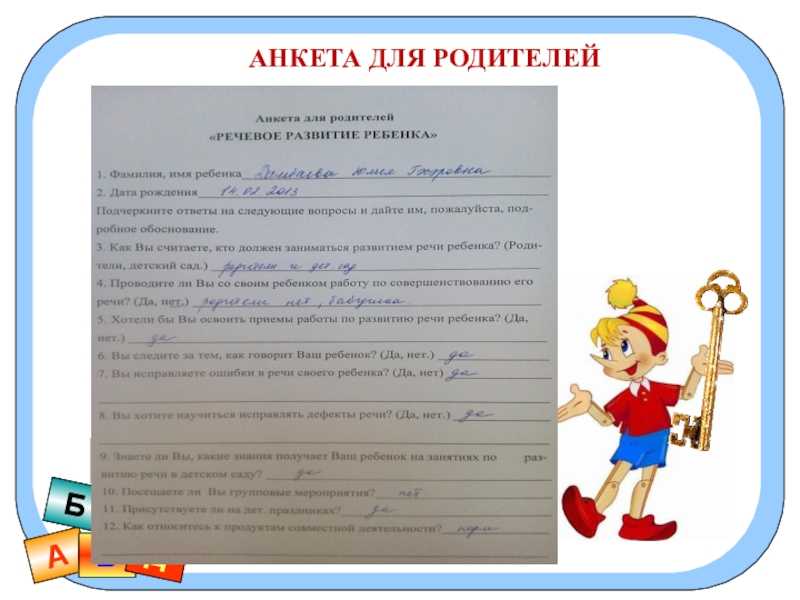 АНКЕТА ДЛЯ РОДИТЕЛЕЙ
Анкета для родителей
«РЕЧЕВОЕ РАЗВИТИЕ РЕБЕНКА»
1. Фамилия, имя ребенка Юлия
2. Дата рождения 14.02 2013
Подчеркните ответы на следующие вопросы и дайте им, пожалуйста, под-
робное обоснование.
3. Как Вы считаете, кто должен заниматься развитием речи ребенка? (Роди-
тели, детский сад.) родители и дет. сад
4. Проводите ли Вы со своим ребенком работу по совершенствованию его
речи? (Да, нет.) родители нет, бабушка.
5. Хотели бы Вы освоить приемы работы по развитию речи ребенка? (Да,
нет.) да
6. Вы следите за тем, как говорит Ваш ребенок? (Да, нет.) да
7. Вы исправляете ошибки в речи своего ребенка? (Да, нет) да
8. Вы хотите научиться исправлять дефекты речи? (Да, нет.) да
9. Знаете ли Вы, какие знания получает Ваш ребенок на занятиях по раз-
витию речи в детском саду? да
10. Посещаете ли Вы групповые мероприятия? нет.
11. Присутствуете ли на дет. праздниках? да
12. Как относитесь к продуктам совместной деятельности? норм
Б
А